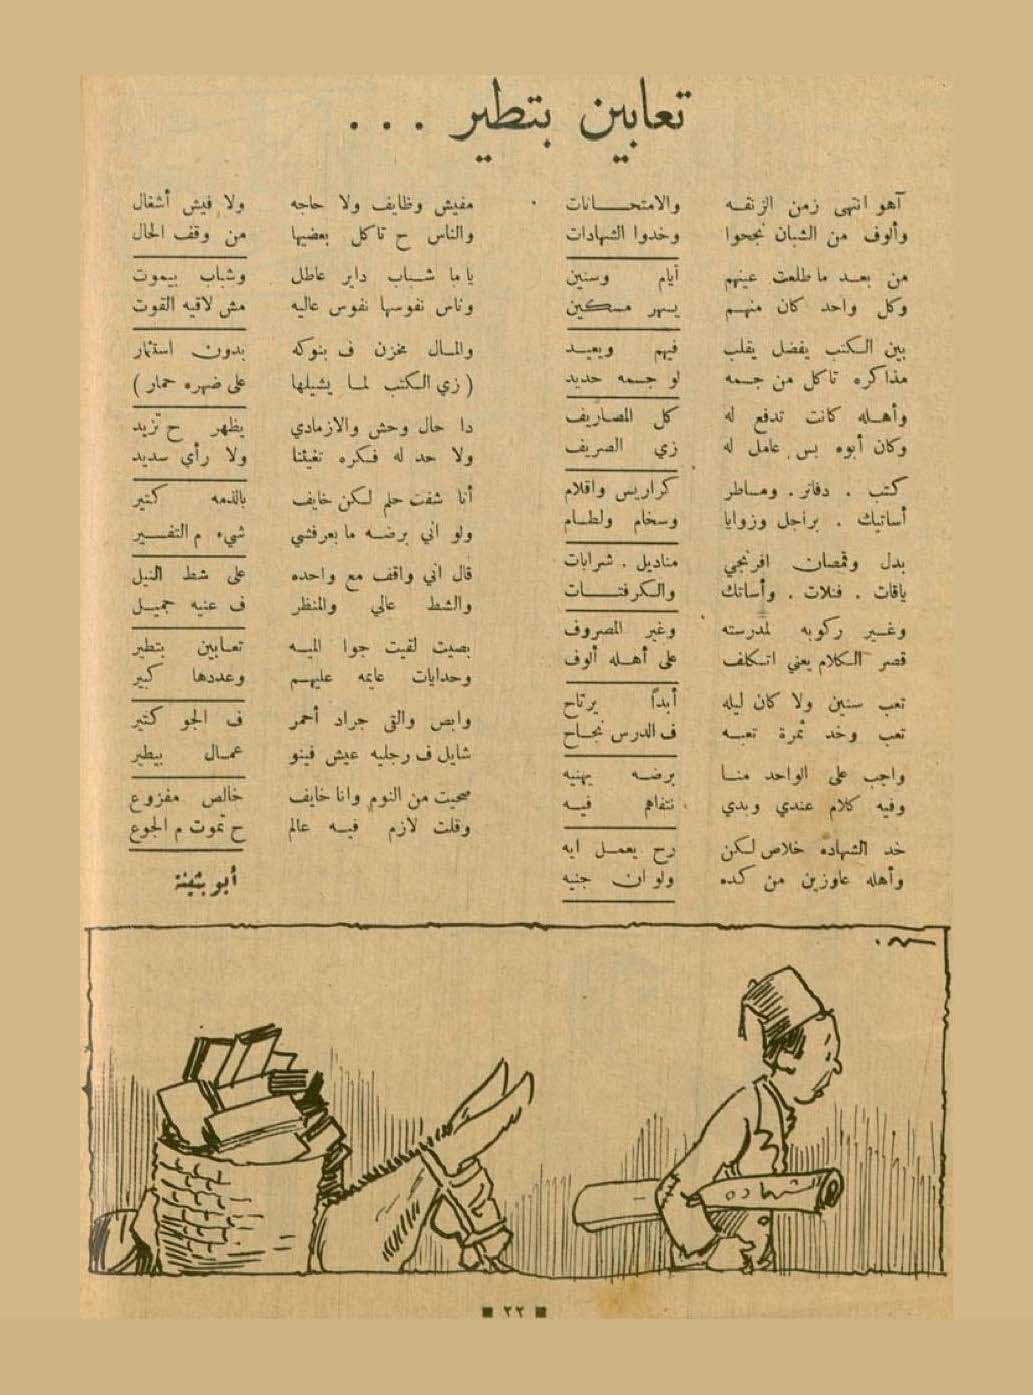 تعابين بتطير ...
آهو انتهى زمن الزنقه والامتحـانات
وألوف من الشبان نجحوا وخدوا الشهادات
من بعد ما طلعت عينهم أيام وسنين
وكل واحد كان منهم يسهر مسكين
بين الكتب يفضل يقلب فيهم ويعيد
مذاكره تاكل من جسمه لو جسمه حديد
وأهله كانت تدفع له كل المصاريف
وكان أبوه بس عامل له زي الصريف
كتب . دفاتر . ومساطر كراريس واقلام
أساتيك . براجل وزوايا وسخام ولطام
بدل وقمصان افرنجي مناديل . شرابات
ياقات . فنلات . وأساتك والكرفتات
وغير ركوبه لمدرسته وغير المصروف
قصر الكلام يعني اتكلف على أهله ألوف
تعب سنين ولا كان ليله أبداً يرتاح
تعب وخد ثمرة تعبه ف الدرس نجاح
واجب على الواحد منا برضه يهنيه
وفيه كلام عندي وبدي نتفاهم فيه
خد الشهاده خلاص لكن رح يعمل ايه
وأهله عاوزين من كده ولو ان جنيه
مفيش وظايف ولا حاجه ولا فيش أشغال
والناس ح تاكل بعضيها من وقف الحال
ياما شباب داير عاطل وشباب بيموت
وناس نفوسها نفوس عاليه مش لاقيه القوت
والمال مخزن ف بنوكه بدون استثمار
( زي الكتب لما يشيلها على ضهره حمار )
دا حال وحش والازمادي يظهر ح تزيد
ولا حد له فكره تغيثنا ولا رأي سديد
أنا شفت حلم لكن خايف بالذمه كتير
ولو اني برضه ما بعرفشي شيء م التفسير
قال اني واقف مع واحده على شط النيل
والشط عالي والمنظر ف عنيه جميل
بصيت لقيت جوا الميه تعابين بتطير
وحدايات عايمه عليهم وعددها كبير
وابص والتى جراد أحمر ف الجو كتير
شايل ف رجليه عيش فينو عمال بيطير
صحيت من النوم وانا خايف خالص مفزوع
وقلت لازم فيه عالم ح تموت م الجوع
أبو بثينة
شهاده
٢٢